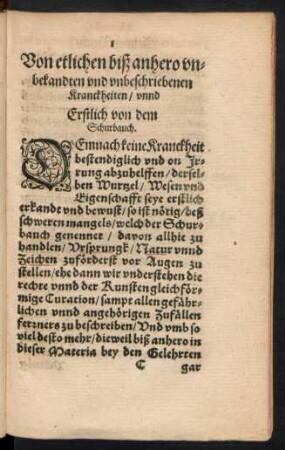 1
Von etlichen biß anhero vn-
bekandten vnd vnbeschriebenen
Kranckheiten/ vnnd
Erstlich von dem
Schurbauch.
DEmnach keine Kranckheit
bestendiglich vnd on Ir-
rung abzuhelffen/ dersel-
ben Wurtzel/ Wesen vnd
Eigenschafft seye erstlich
erkandt vnd bewust/ so ist nötig/ deß
schweren mangels/ welch der Schur-
bauch genennet/ davon allhie zu
handlen/ Vrsprungk/ Natur vnnd
Zeichen zuförderst vor Augen zu
stellen/ ehe dann wir vnderstehen die
rechte vnnd der Kunsten gleichför-
mige Curation/ sampt allen gefähr-
lichen vnnd angehörigen Zufällen
ferzners zu beschreiben/ Vnd vmb so
viel desto mehr/ dieweil biß anhero in
dieser Materia bey den Gelehrten
C gar